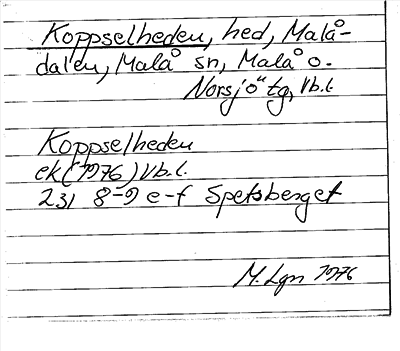 Koppselheden, hed, Malå-
dalen, Malå sn, Malå o.
Norsjö tg, Vb.l.
Koppselheden
ek(1976) Vb.l.
231 8-9 e-f Spetsberget
M. Lgn 1976